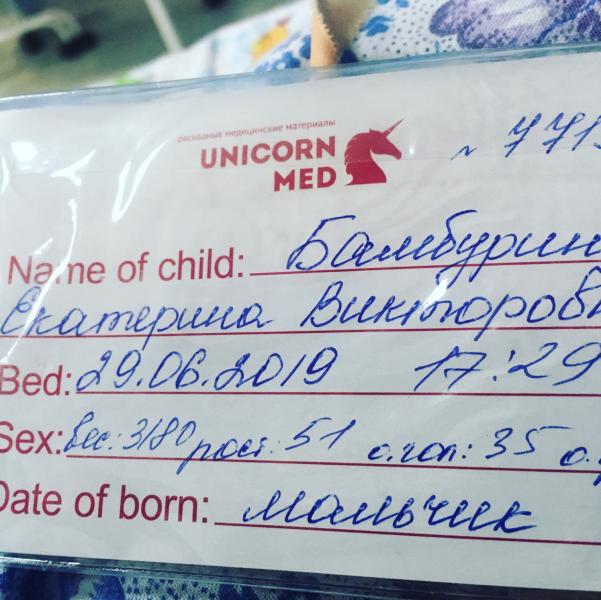 расходные медицинские материалы
UNICORN
MED
№ 771
Name of child: Бамбурин
Екатерина Викторовн
Bed: 29.06.2019 17:29
Sex: вес: 3180 рост: 51 о.гол: 35 о.
Date of born: мальчик